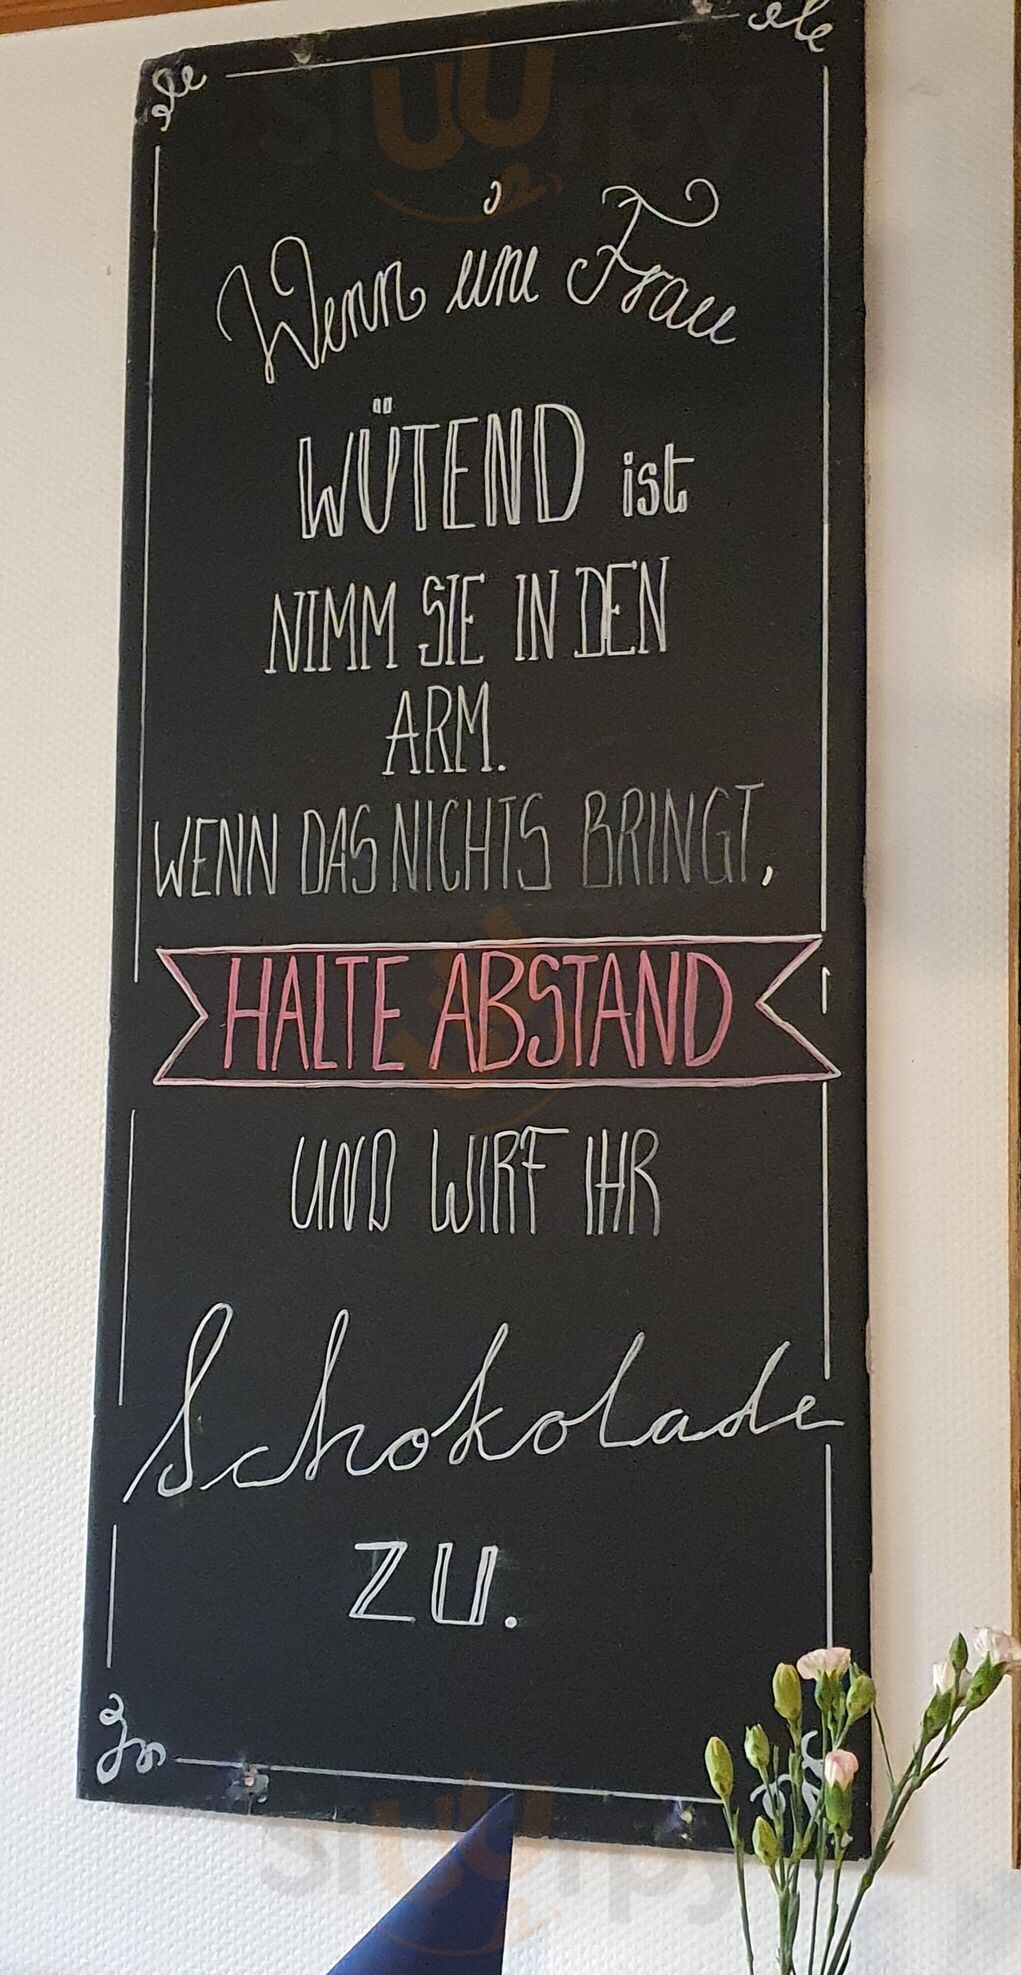 Wenn eine Frau
WÜTEND ist
NIMM SIE IN DEN
ARM.
WENN DAS NICHTS BRINGT,
HALTE ABSTAND
UND WIRF IHR
Schokolade
ZU.